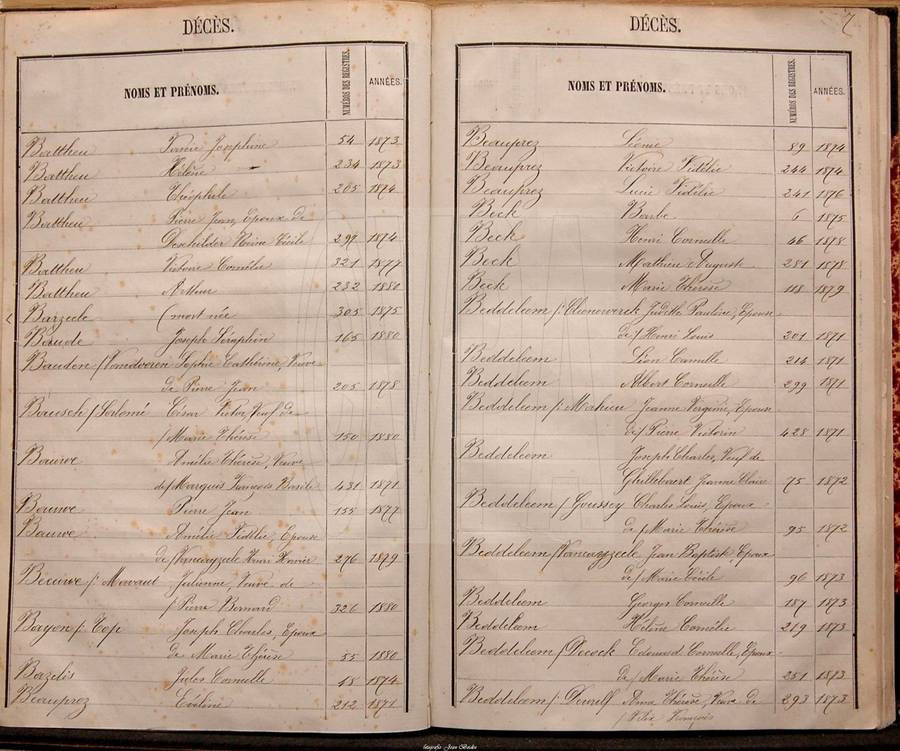 DÉCÈS.
NOMS ET PRÉNOMS. NUMÉROS DES REGISTRES. ANNÉES.
Battheu Fanie Joséphine 54 1873
Battheu Hélène 234 1873
Battheu Théophile 205 1874
Battheu Pierre Jean, Epoux de
Deschilder Reine Cécile 299 1874
Battheu Victoire Cornélie 321 1877
Battheu Arthur 232 1880
Barzeele (mort née 305 1875
Baude Joseph Séraphin 165 1880
Baudere / Vandvoeren Sophie Cathérine, Veuve
de Pierre Jean 205 1878
Bausch / Salomé César Victor, Veuf de
/ Marie Thérèse 150 1880
Bauwe Amélie Thérèse, Veuve
de / Marquis François Basile 431 1871
Bauwe Pierre Jean 155 1877
Bauwe Amélie Fidélie, Epouse
de / Vancayzeele Henri Xavier 276 1879
Bauwe / Julienne, Veuve de
/ Pierre Bernard 326 1880
Bayon / Top Joseph Charles, Epoux
de Marie Thérèse 55 1880
Bazelis Jules Corneille 18 1874
Beauprez 212 1871
DÉCÈS. 7
NOMS ET PRÉNOMS. NUMÉROS DES REGISTRES. ANNÉES.
Beauprez Léonie 89 1874
Beauprez Victoire Fidélie 244 1874
Beauprez Lucie Fidélie 241 1876
Beck Barbe 6 1875
Beck Henri Corneille 46 1878
Beck Mathieu Auguste 281 1878
Beck Marie Thérèse 118 1879
Beddeleem / Judith Pauline, Epouse
de / Henri Louis 201 1871
Beddeleem Léon Camille 214 1871
Beddeleem Albert Corneille 299 1871
Beddeleem / Mahieu Jeanne Virginie, Epouse
de / Pierre Victorin 428 1871
Beddeleem Joseph Charles, Veuf de
Ghillebaert Jeanne Claire 75 1872
Beddeleem / Goussey Charles Louis, Epoux
de / Marie Thérèse 95 1872
Beddeleem / Vancayzeele Jean Baptiste, Epoux
de / Marie Cécile 96 1873
Beddeleem Georges Corneille 187 1873
Beddeleem Hélène Cornélie 219 1873
Beddeleem / Decock Edouard Corneille, Epoux
de / Marie Thérèse 251 1873
Beddeleem / Dewulf Anna Thérèse, Veuve de 293 1873
/ Félix François
fotografie Jean Beckx